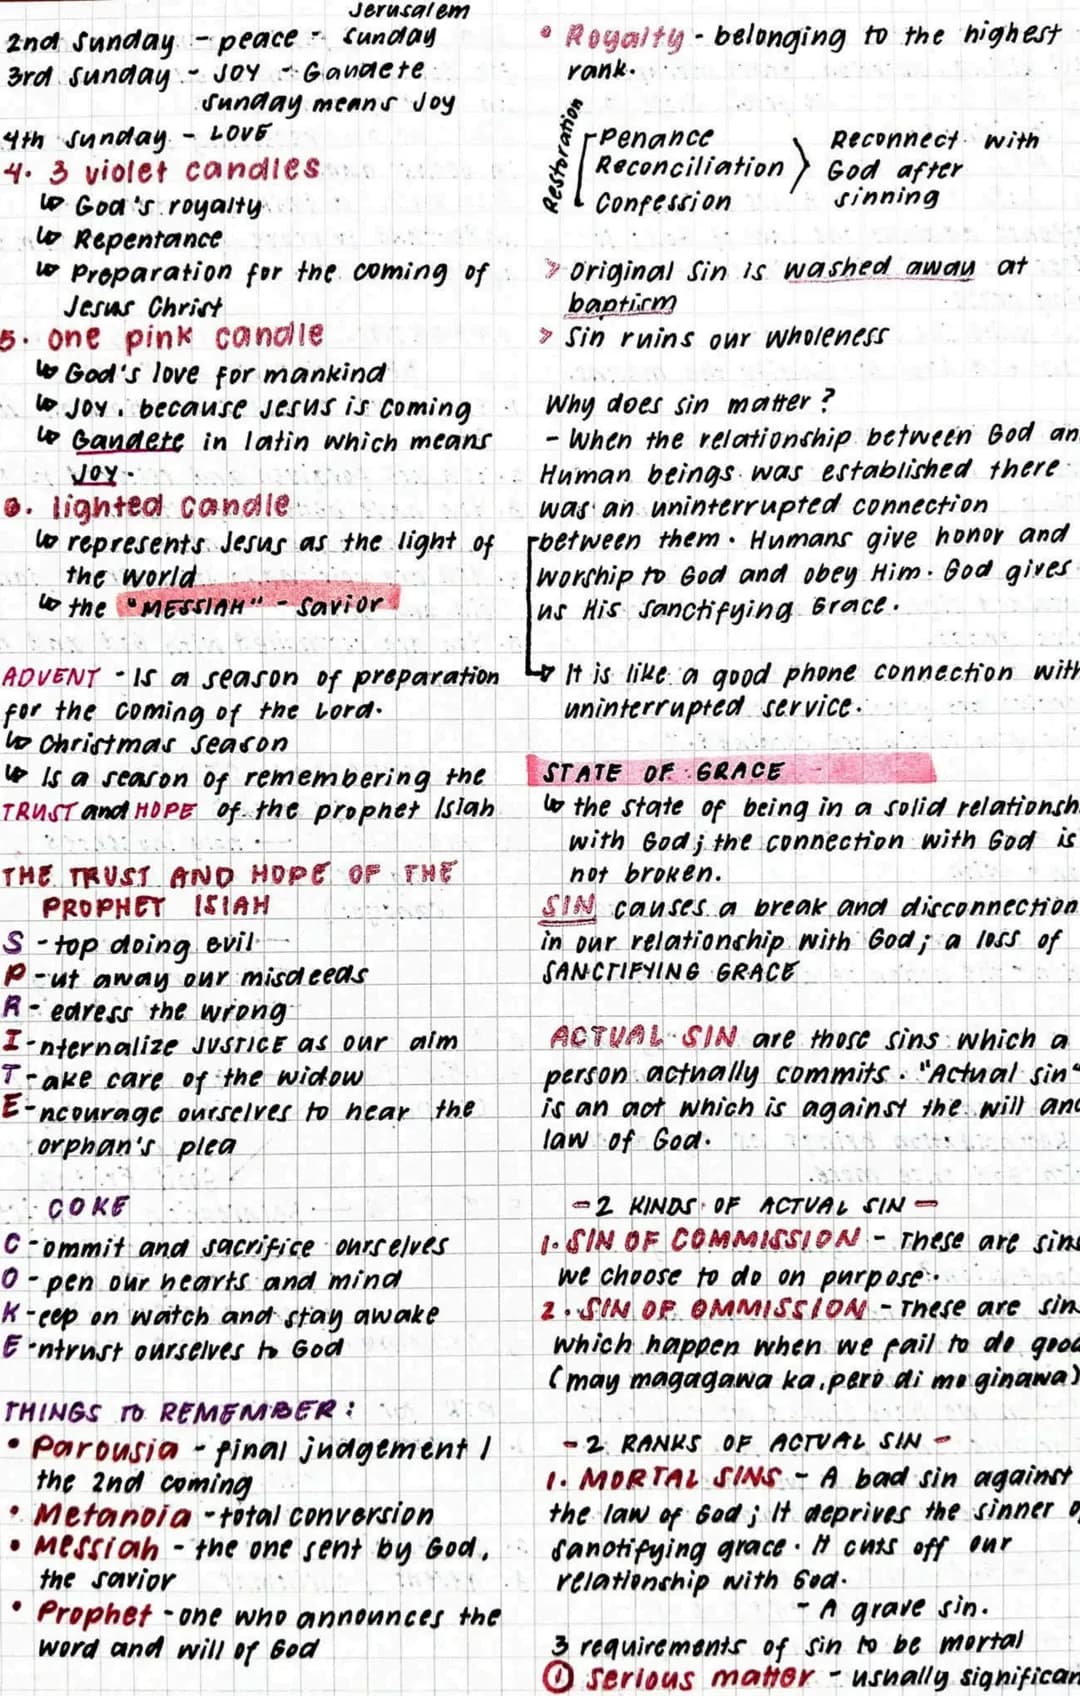 Jerusalem
2nd Sunday - peace - Sunday
3rd Sunday - JOY - Gaudete
Sunday means Joy
4th Sunday - LOVE
4. 3 violet candles
↳ God's royalty
↳ Repentance
↳ Preparation for the coming of
Jesus Christ
5. one pink candle
↳ God's love for mankind
↳ JOY, because Jesus is coming
↳ Gaudete in latin which means
JOY.
6. lighted candle
↳ represents Jesus as the light of
the world
↳ the "MESSIAH" - Savior
ADVENT - Is a season of preparation
for the coming of the Lord.
↳ Christmas season
↳ Is a season of remembering the
TRUST and HOPE of the prophet Isiah
THE TRUST AND HOPE OF THE
PROPHET ISIAH
S - top doing evil
P - ut away our misdeeds
R - edress the wrong
I - nternalize JUSTICE as our aim
T - ake care of the widow
E - ncourage ourselves to hear the
orphan's plea
COKE
C - ommit and sacrifice ourselves
O - pen our hearts and mind
K - eep on watch and stay awake
E - ntrust ourselves to God
THINGS TO REMEMBER:
• Parousia - final judgement /
the 2nd coming
• Metanoia - total conversion
• Messiah - the one sent by God,
the savior
• Prophet - one who announces the
word and will of God
• Royalty - belonging to the highest
rank.
Restoration
Penance
Reconciliation
Confession
Reconnect with
God after
sinning
> Original Sin is washed away at
baptism
> Sin ruins our wholeness
Why does sin matter?
- When the relationship between God an
Human beings was established there
was an uninterrupted connection
between them. Humans give honor and
worship to God and obey Him. God gives
us His Sanctifying Grace.
↳ It is like a good phone connection with
uninterrupted service.
STATE OF GRACE
↳ the state of being in a solid relationsh
with God; the connection with God is
not broken.
SIN causes a break and disconnection
in our relationship with God; a loss of
SANCTIFYING GRACE
ACTUAL SIN are those sins which a
person actually commits. "Actual sin"
is an act which is against the will and
law of God.
- 2 KINDS OF ACTUAL SIN -
1. SIN OF COMMISSION - These are sins
we choose to do on purpose.
2. SIN OF OMMISSION - These are sin
which happen when we fail to do good
(may magagawa ka, pero di mo ginawa)
- 2 RANKS OF ACTUAL SIN -
1. MORTAL SINS - A bad sin against
the law of God; It deprives the sinner o
sanctifying grace. It cuts off our
relationship with God.
- A grave sin.
3 requirements of sin to be mortal
① Serious matter - usually significan